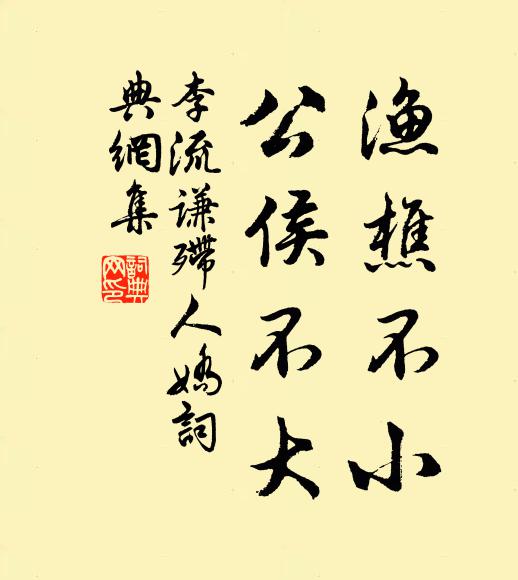 漁樵不小
公侯不大
李流谦殢人嬌詞
典網集
詞典網印